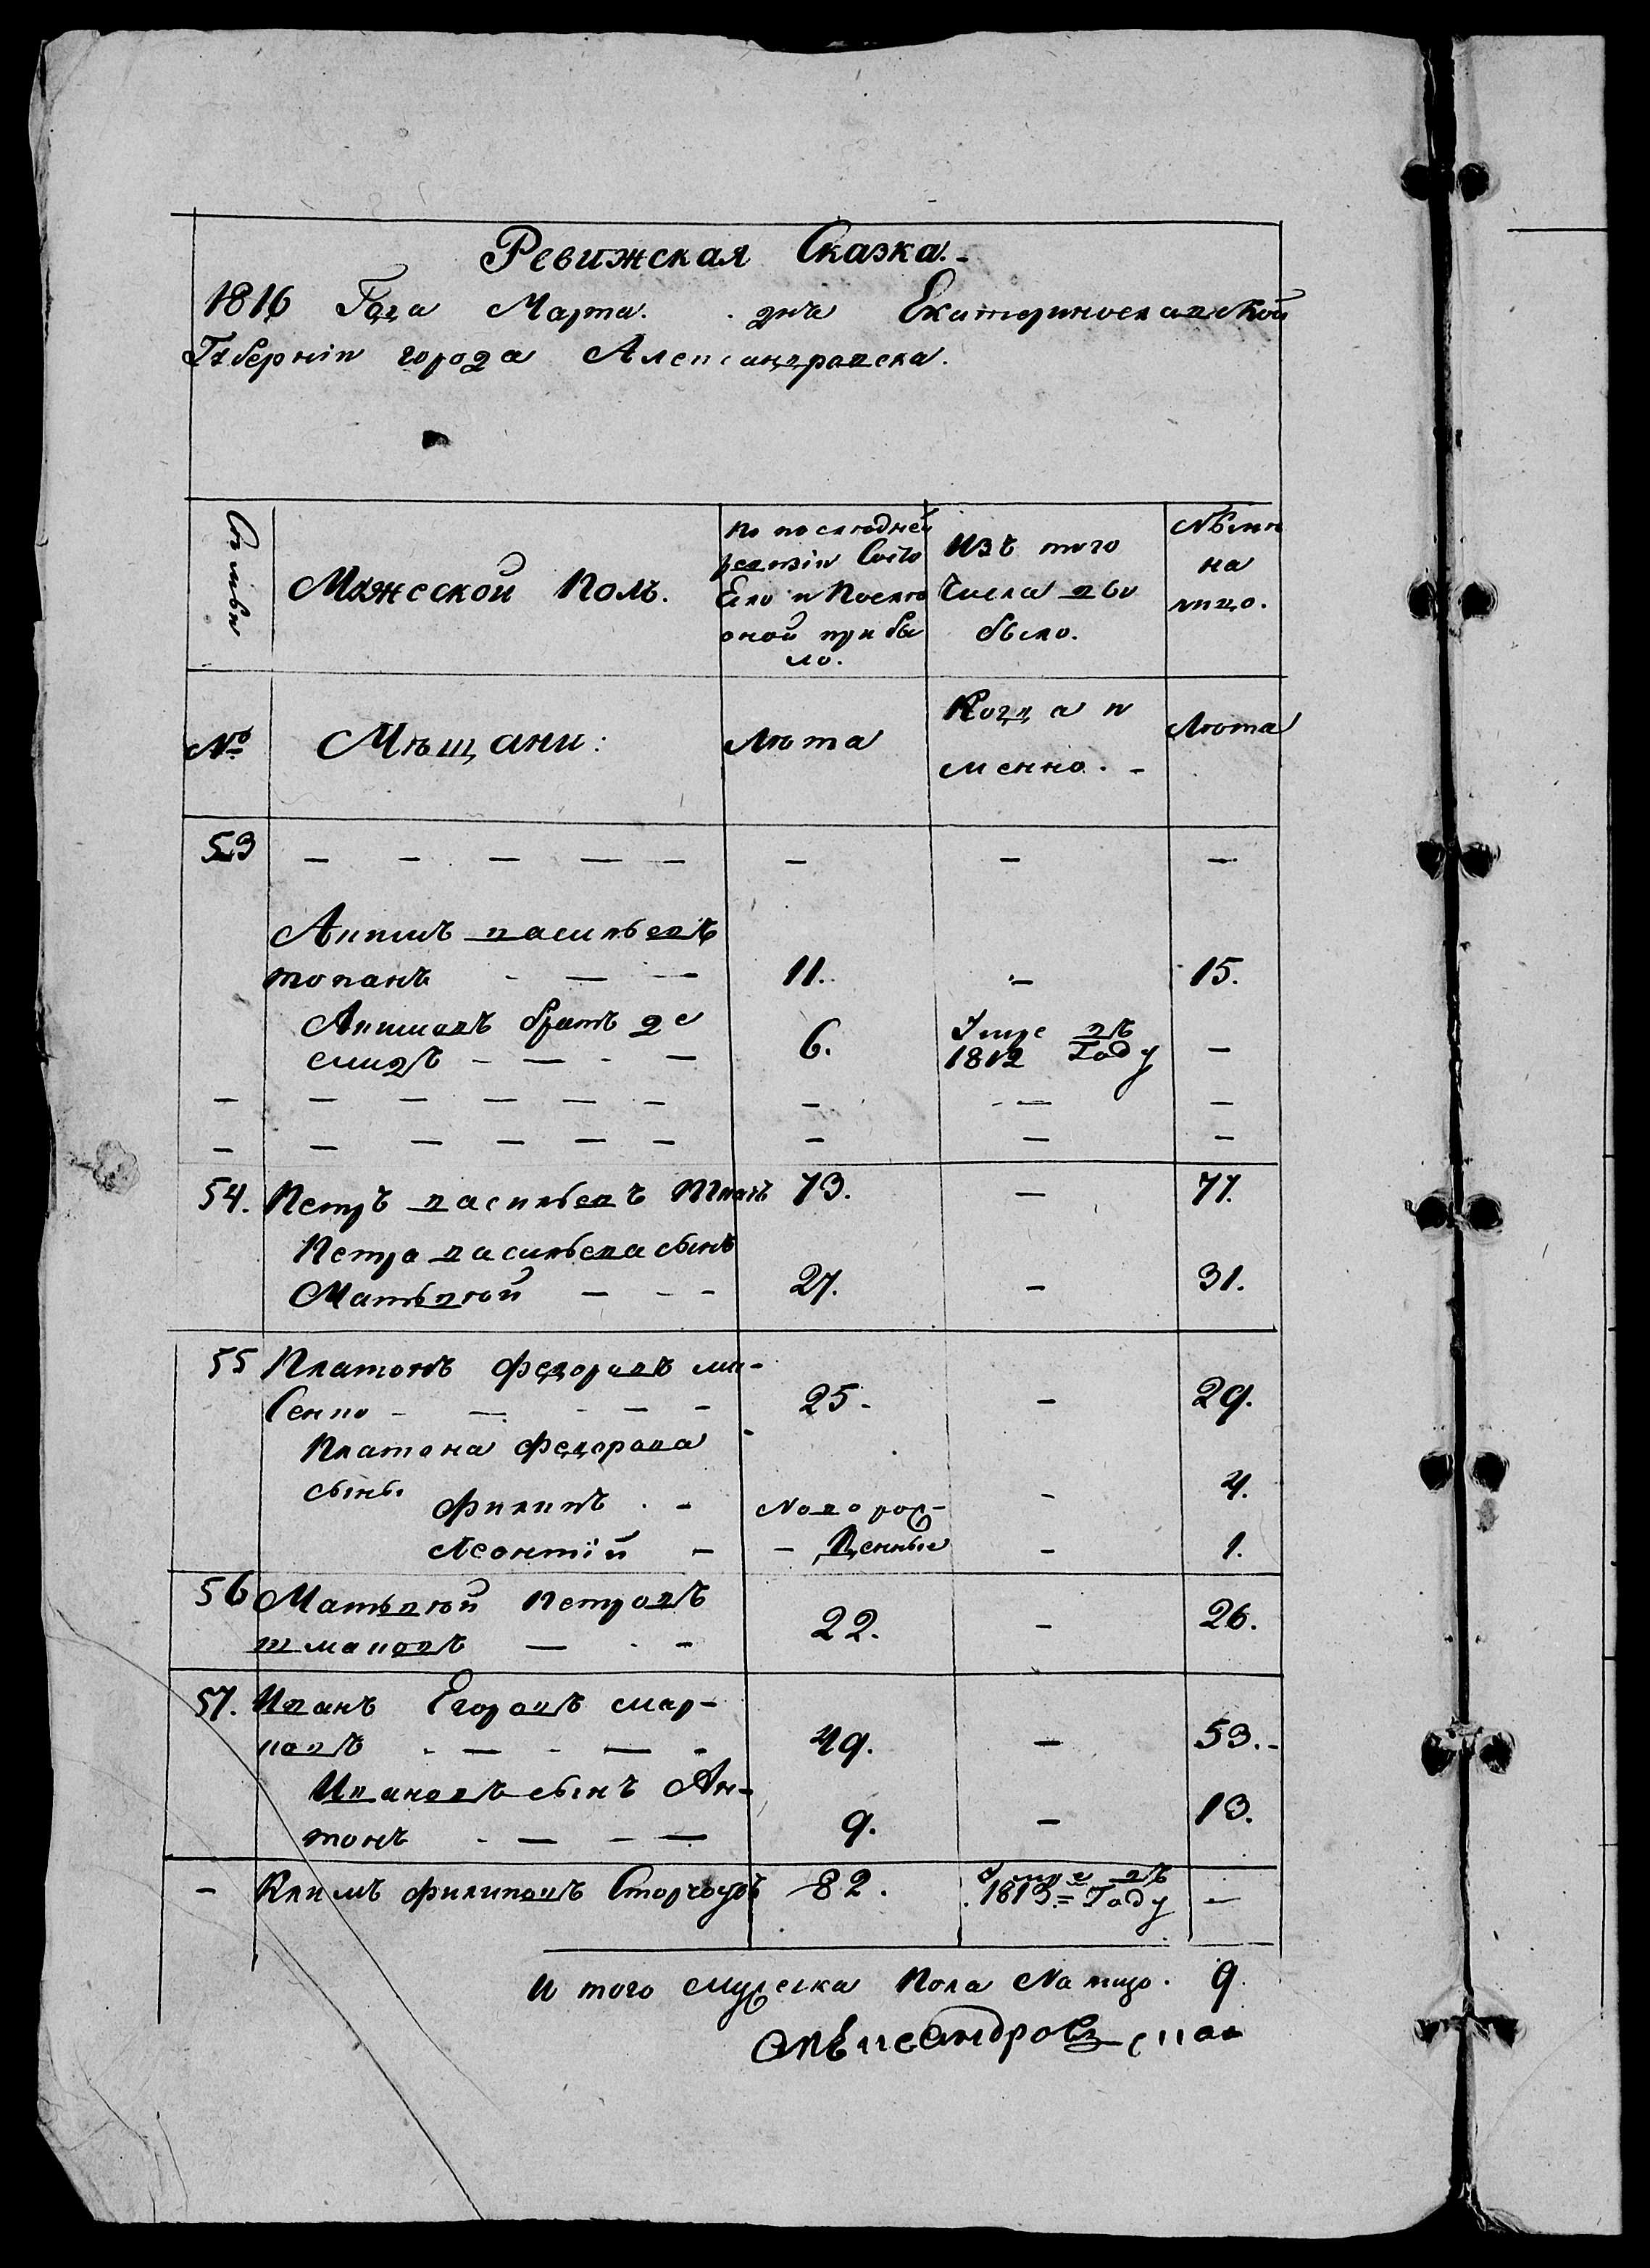 Ревижская Сказка.-
1816 Года Марта. дня Екатеринославской
Губерніи города Александровска.
Семьи
Мужеской Полъ.
По последней
ревизіи Состо
Яло и После
оной при бы
ло.
Изъ того
Числа вы
было.
Ныне
на
лицо.
№
Мещани:
Лета
Когда и
менно. -
Лета
53 — — — — — — — —
Акимъ васильевъ
11. — 15.
Акимовъ братъ де
мидъ - — - — 6. Умре въ 1812 Году —
— — — — — — — — —
— — — — — — — — —
54. Петръ васильевъ 73. — 77.
Петра васильева сынъ
Матвей — - - 27. - 31.
55 Платонъ федоровъ ми-
сенко - — - — - 25. - 29.
Платона федорова
сыны
филипъ . - Новорож- - 4.
Леонтій - - денные - 1.
56 Матвей Петровъ
22. - 26.
57. Иванъ Егоровъ мар-
ковъ . — - — - 49. — 53.-
Ивановъ сынъ Ан-
тонъ - — - — 9. — 13.
- Климъ филиповъ 82. Умре въ 1813 = Году —
И того мужеска Пола На лицо. 9